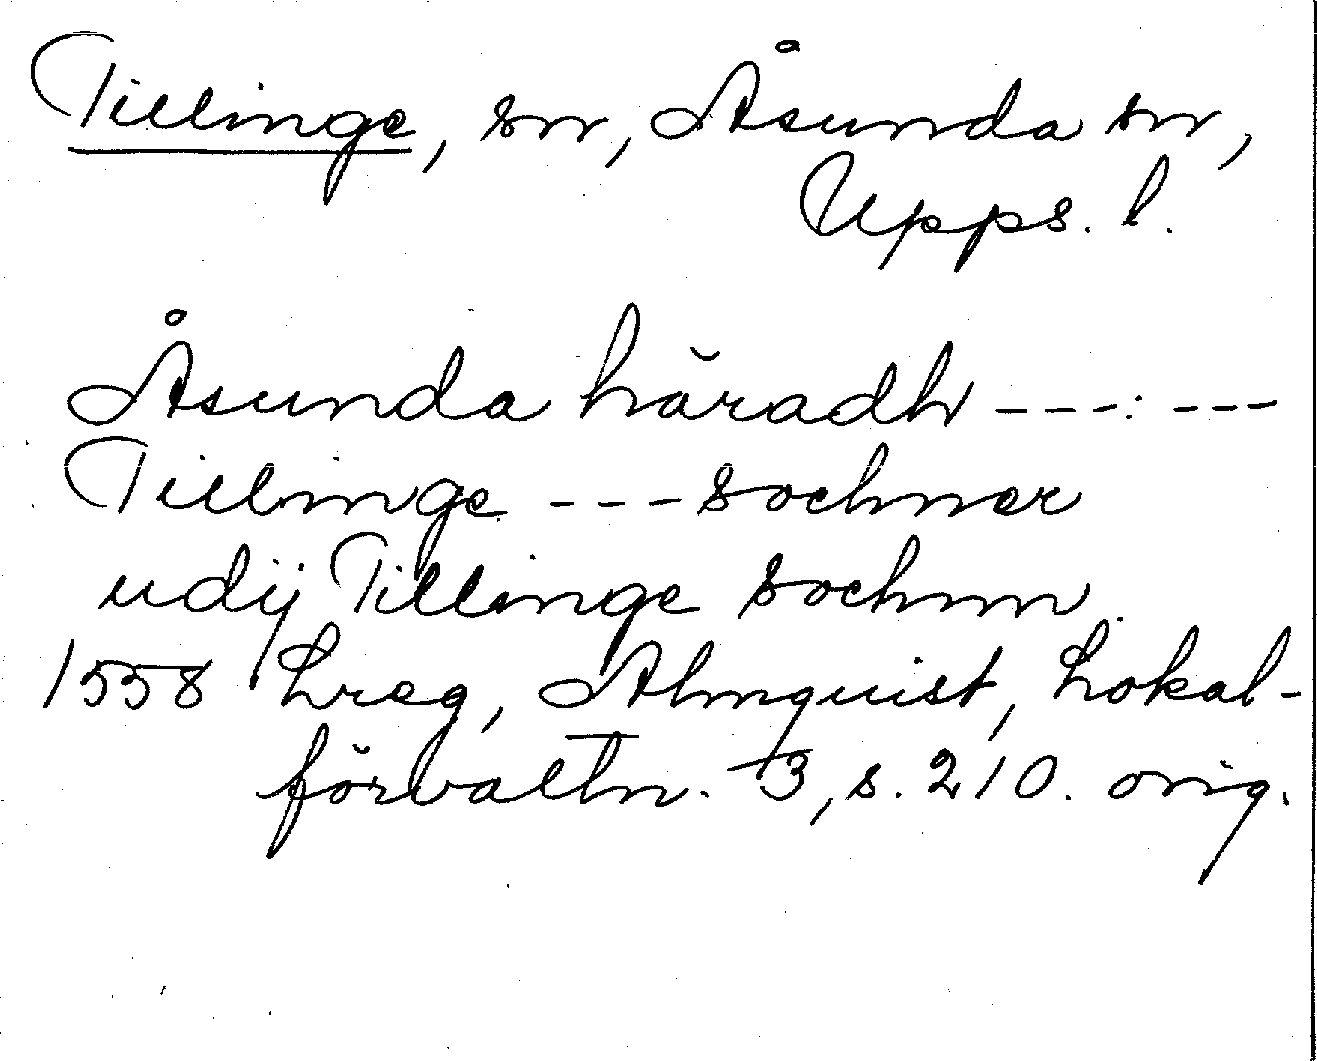 Tillinge, sn, Åsunda sn,
Upps. l.
Åsunda häradh ---:---
Tillinge --- sochner
udij Tillinge sochnn.
1558 Lreg, Almquist, Lokal-
förvaltn. 3, s. 210. orig.